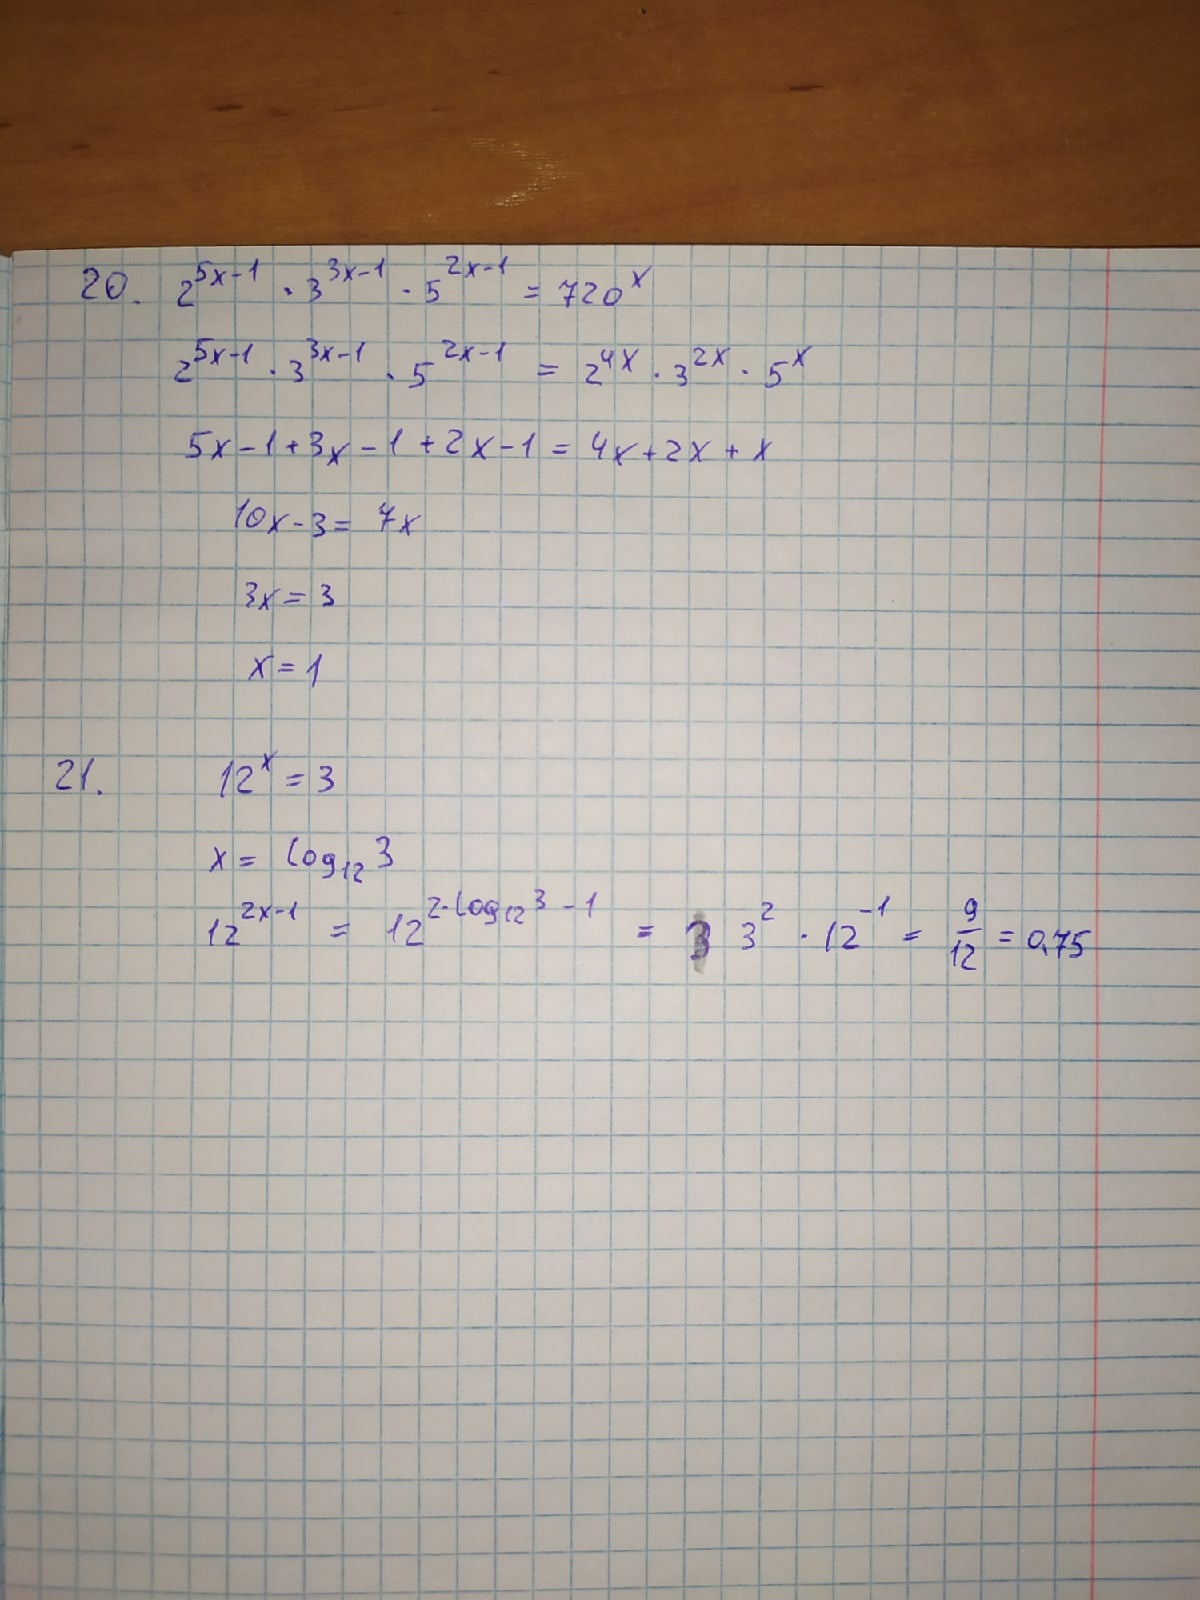 20. 2^{5x-1} · 3^{3x-1} · 5^{2x-1} = 720^x
2^{5x-1} · 3^{3x-1} · 5^{2x-1} = 2^{4x} · 3^{2x} · 5^x
5x-1+3x-1+2x-1 = 4x+2x+x
10x-3 = 7x
3x = 3
x = 1
21. 12^x = 3
x = log_{12} 3
12^{2x-1} = 12^{2·log_{12} 3 - 1} = 3^2 · 12^{-1} = \frac{9}{12} = 0,75